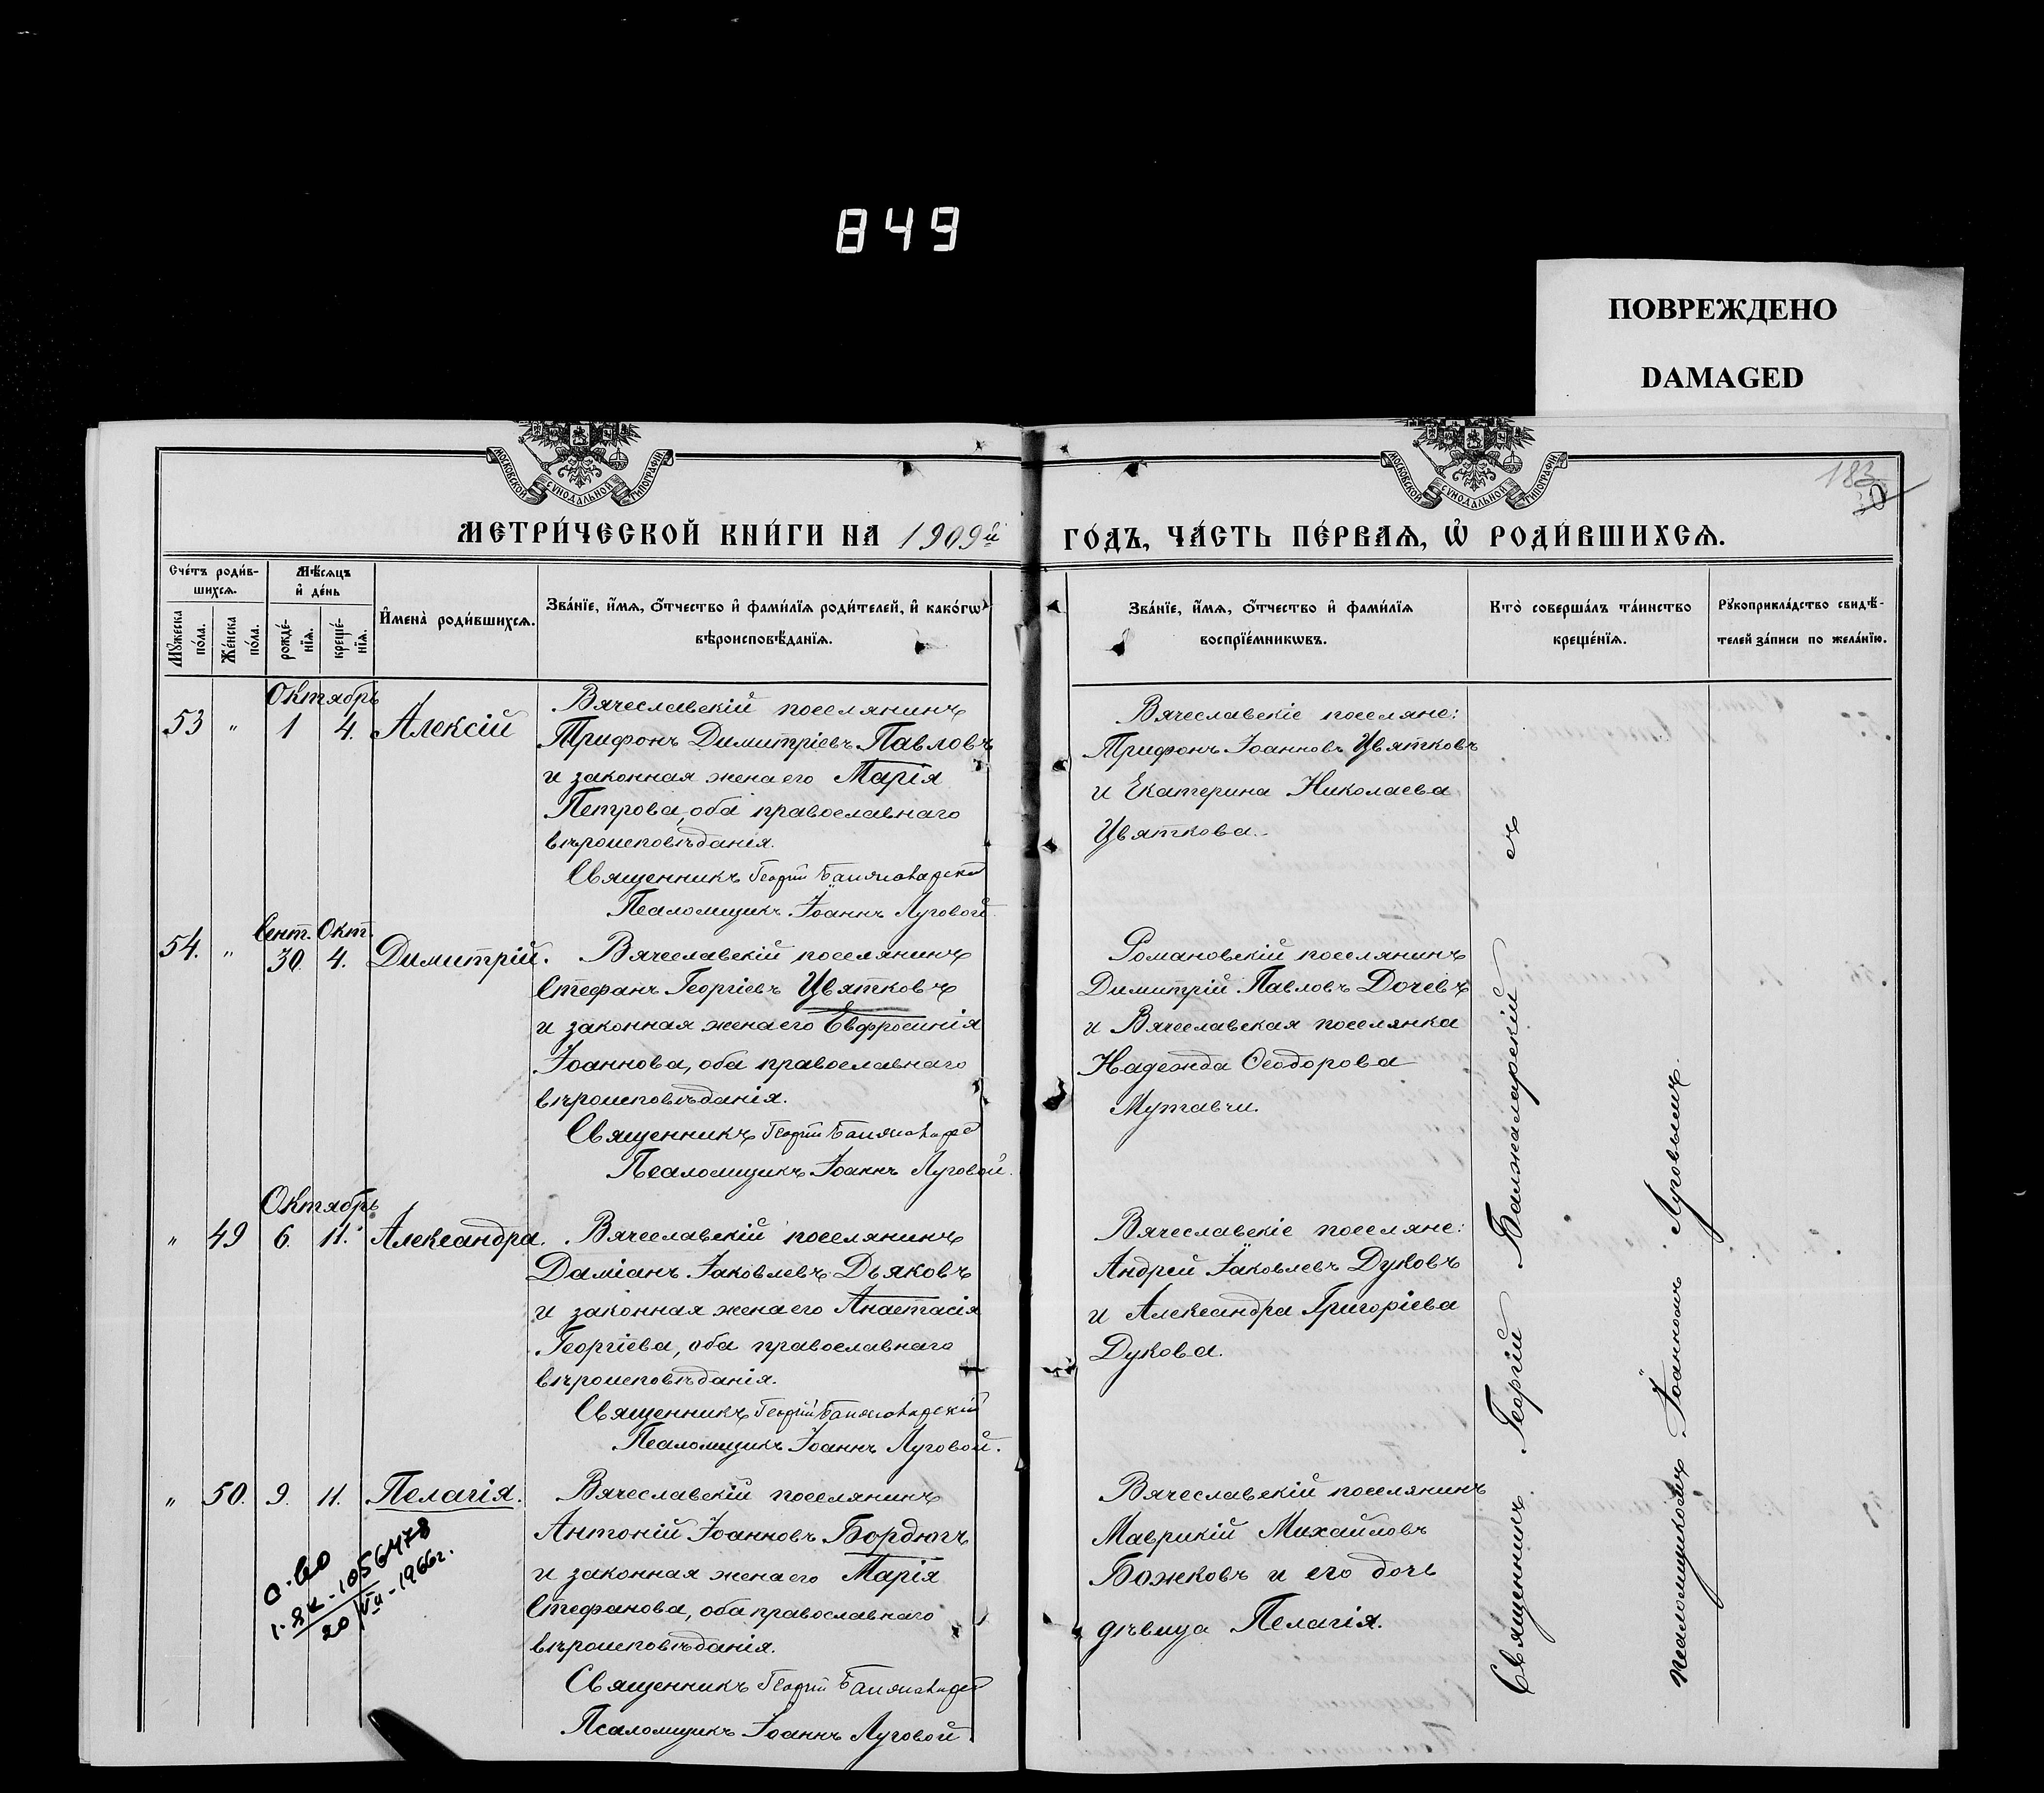 849
ПОВРЕЖДЕНО
DAMAGED
МОСКОВСКОЙ СѴНОДАЛЬНОЙ ТИПОГРАФІИ
МОСКОВСКОЙ СѴНОДАЛЬНОЙ ТИПОГРАФІИ
183
МЕТРИ́ЧЕСКОЙ КНИ́ГИ НА 1909й
ГО́ДЪ, ЧА́СТЬ ПЕ́РВАѦ, Ѡ҆ РОДИ́ВШИХСѦ.
Сче́тъ роди́в-
шихсѧ.
Мꙋ́жеска по́ла.
Же́нска по́ла.
Мѣ́сѧцъ
и҆ де́нь
рожде́-
нїѧ.
креще́-
нїѧ.
И҆мена̀ роди́вшихсѧ.
Зва́нїе, и҆́мѧ, ѻ҆́тчество и҆ фами́лїѧ роди́телей, и҆ како́гѡ
вѣроисповѣ́данїѧ.
Зва́нїе, и҆́мѧ, ѻ҆́тчество и҆ фами́лїѧ
воспрїе́мникѡвъ.
Кто̀ соверша́лъ та́инство
креще́нїѧ.
Рꙋкоприкла́дство свидѣ́-
телей за́писи по жела́нїю.
Октябрь
53 " 1 4. Алексій
Вячеславскій поселянинъ
Трифонъ Димитріевъ Павловъ
и законная жена его Марія
Петрова, оба православнаго
вѣроисповѣданія.
Священникъ Георгій Балжаларскій
Псаломщикъ Іоаннъ Луговой
Вячеславскіе поселяне:
Трифонъ Іоанновъ Цвятковъ
и Екатерина Николаева
Цвяткова.
Сент. Окт.
54. " 30. 4. Димитрій.
Вячеславскій поселянинъ
Стефанъ Георгіевъ Цвятковъ
и законная жена его Евфросинія
Іоаннова, оба православнаго
вѣроисповѣданія.
Священникъ Георгій
Псаломщикъ Іоаннъ Луговой.
Романовскій поселянинъ
Димитрій Павловъ Дочевъ
и Вячеславская поселянка
Надежда Ѳеодорова
Мутавчи.
Октябрь
" 49 6. 11. Александра.
Вячеславскій поселянинъ
Даміанъ Іаковлевъ Дьяковъ
и законная жена его Анастасія
Георгіева, оба православнаго
вѣроисповѣданія.
Священникъ Георгій Балжаларскій
Псаломщикъ Іоаннъ Луговой.
Вячеславскіе поселяне:
Андрей Іаковлевъ Дуковъ
и Александра Григоріева
Дукова.
" 50. 9. 11. Пелагія.
Вячеславскій поселянинъ
Антоній Іоанновъ Бордюгъ
и законная жена его Марія
Стефанова, оба православнаго
вѣроисповѣданія.
Священникъ Георгій
Псаломщикъ Іоаннъ Луговой
Вячеславскій поселянинъ
Маврикій Михайловъ
Божковъ и его дочь
дѣвица Пелагія.
1056478
20/VII-1966г.
Священникъ Георгій Балжаларскій съ
псаломщикомъ Іоанномъ Луговымъ.